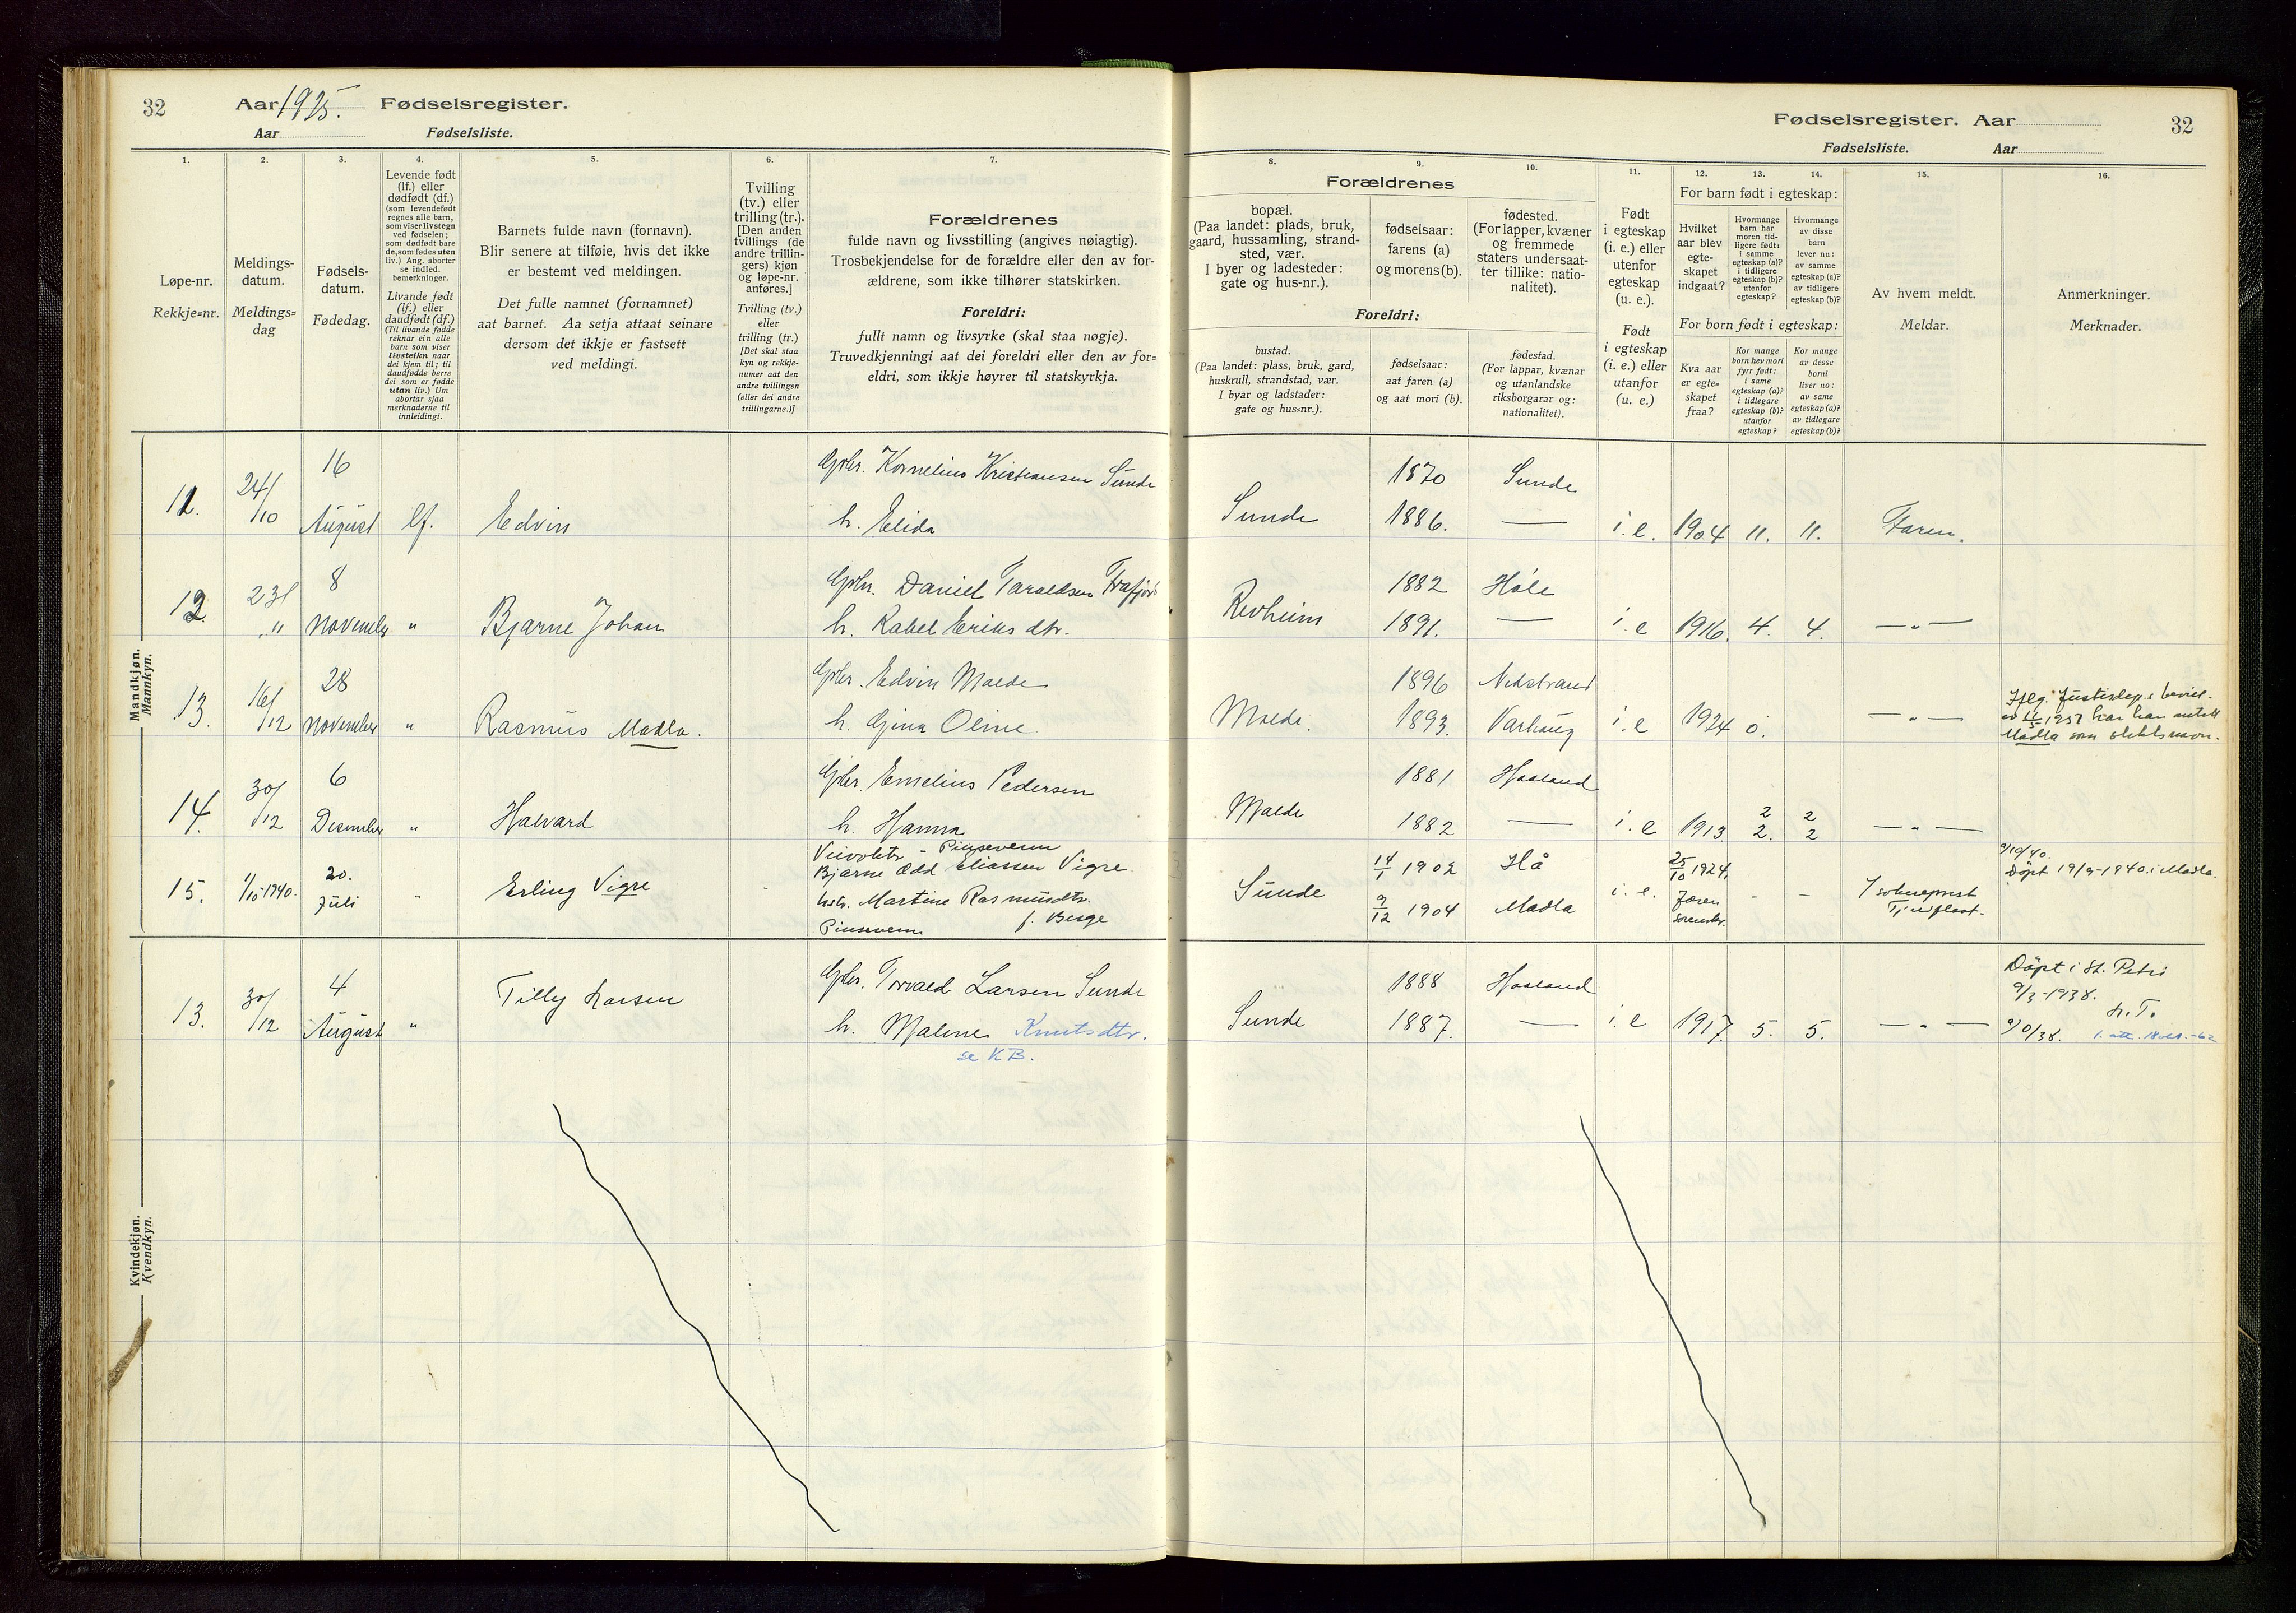 32 Aar 1925. Fødselsregister.
Aar Fødselsliste.
1. 2. 3. 4. 5. 6. 7.
Løpe-nr.
Rekkje=nr.
Meldings-
datum.
Meldings=
dag
Fødsels-
datum.
Fødedag.
Levende født
(lf.) eller
dødfødt (df.)
(som levendefødt
regnes alle barn,
som viser livstegn
ved fødselen;
som dødfødt bare
de, som fødes uten
liv.) Ang. aborter
se indled.
bemerkninger.
Livande født
(lf.) eller
daudfødt (df.)
(Til livande fødde
reknar ein alle
barn som viser
livsteikn naar
dei kjem til; til
daudfødde berre
dei som er fødde
utan liv.) Um
abortar sjaa
merknaderne til
innleidingi.
Barnets fulde navn (fornavn).
Blir senere at tilføie, hvis det ikke
er bestemt ved meldingen.
Det fulle namnet (fornamnet)
aat barnet. Aa setja attaat seinare
dersom det ikkje er fastsett
ved meldingi.
Tvilling
(tv.) eller
trilling (tr.).
[Den anden
tvillings (de
andre trillin-
gers) kjøn
og løpe-nr.
anføres.]
Tvilling (tv.)
eller
trilling (tr.)
[Det skal staa
kyn og rekkje-
numer aat den
andre tvillingen
(eller dei andre
trillingarne.)]
Forældrenes
fulde navn og livsstilling (angives nøiagtig).
Trosbekjendelse for de forældre eller den av for-
ældrene, som ikke tilhører statskirken.
Foreldri:
fullt namn og livsyrke (skal staa nøgje).
Truvedkjenningi aat dei foreldri eller den av for=
eldri, som ikkje høyrer til statskyrkja.
Mandkjøn.
Mannkyn.
11. 24/10 16 August lf. Edvin
Gbr. Kornelius Kristiansen Sunde
h. Elida
12. 23/" 8 November " Bjarne Johan
Gbr. Daniel Taraldsen Frafjord
h. Rakel Eriks dtr.
13. 16/12 28 November " Rasmus Madla.
Gbr. Edvin Malde
h. Gina Oline
14. 30/12 6 Desember " Halvard
Gbr. Emelius Pedersen
h. Hanna
15. 1/10-1940. 20. Juli " Erling Vigre
Pinsevenn
Bjarne Odd Eliassen Vigre
h. Martine Rasmusdtr.
Pinsevenn f. Berge
Kvindekjøn.
Kvendkyn.
13. 30/12 4 August " Tilly Larsen
Gbr. Torvald Larsen Sunde
h. Malene Knutsdtr.
se KB.
Fødselsregister. Aar 32
Fødselsliste. Aar
8. 9. 10. 11. 12. 13. 14. 15. 16.
Forældrenes
bopæl.
(Paa landet: plads, bruk,
gaard, hussamling, strand-
sted, vær.
I byer og ladesteder:
gate og hus-nr.).
fødselsaar:
farens (a)
og morens (b).
fødested.
(For lapper, kvæner
og fremmede
staters undersaat-
ter tillike: natio-
nalitet).
Foreldri:
bustad.
(Paa landet: plass, bruk, gard,
huskrull, strandstad, vær.
I byar og ladstader:
gate og hus=nr.).
fødselsaar:
aat faren (a)
og aat mori (b).
fødestad.
(For lappar, kvænar
og utanlandske
riksborgarar og:
nationalitet).
Født
i egteskap
(i. e.) eller
utenfor
egteskap
(u. e.).
Født
i egteskap
(i. e.) eller
utanfor
(u. e.)
For barn født i egteskap:
Hvilket
aar blev
egte-
skapet
indgaat?
Hvormange
barn har
moren tid-
ligere født:
i samme
egteskap (a)?
i tidligere
egteskap (b)?
utenfor
egteskap?
Hvormange
av disse
barn
lever nu:
av samme
egteskap (a)?
av tidligere
egteskap (b)?
For born født i egteskap:
Kva aar
er egte=
skapet
fraa?
Kor mange
born hev mori
fyrr født:
i same
egteskap (a)?
i tidlegare
egteskap (b)?
utanfor
egteskap?
Kor mange
av desse
borni
liver no:
av same
egteskap (a)?
av tidlegare
egteskap (b)?
Av hvem meldt.
Meldar.
Anmerkninger.
Merknader.
Sunde 1870 Sunde
1886. — i. e. 1904 11. 11. Faren.
Revheim 1882 Høle
1891. — i. e 1916. 4. 4. — " —
Malde. 1896 Nedstrand
1893. Varhaug i. e 1924 0. — " —
har han antatt
Madla som slektsnavn.
Malde 1881 Haaland
1882 — i. e 1913. 2 2
2. 2 — " —
Sunde 14/1 1902 Hå
9/12 1904 Madla i. e. 25/10 1924. Jæren sorenskr. - - sokneprest
Tjentfloat.
9/10/40.
Döpt 19/9-1940 i Madla.
Sunde 1888 Haaland
1887. — i. e 1917. 5. 5. — " —
Döpt i St. Petri
9/3-1938.
h. T.